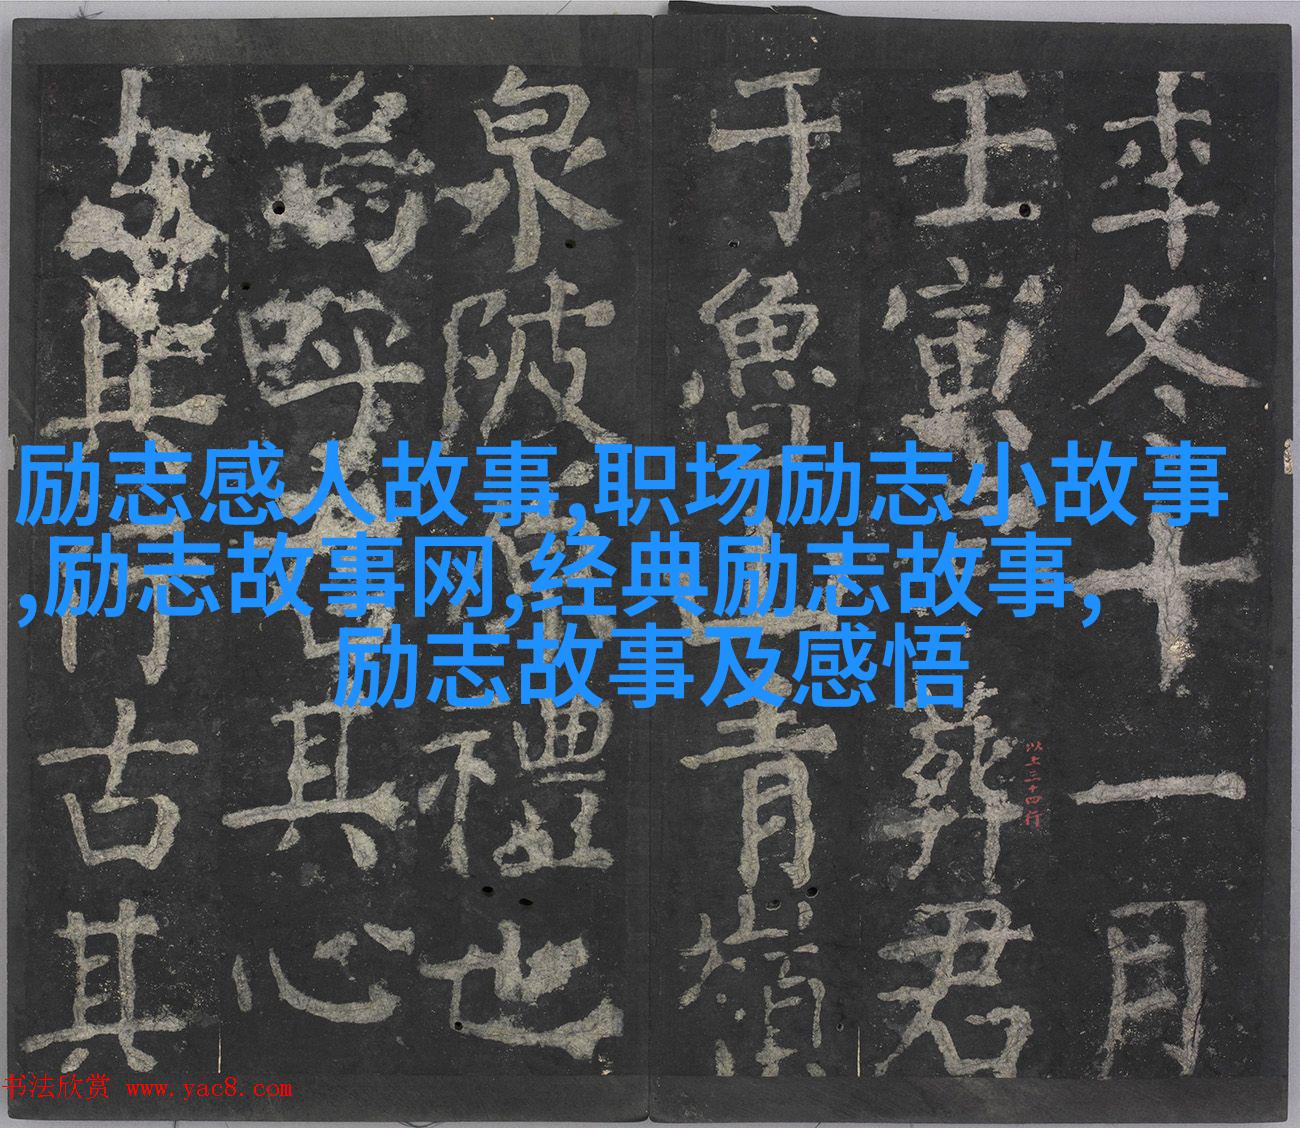 励志感人故事,职场励志小故事
,励志故事网,经典励志故事,
励志故事及感悟
年冬十一月
壬寅葬君
以上三十四行
于鲁山青岭
泉陂原礼也
呜呼其心
其行古其
书法欣赏 www.yac8.com